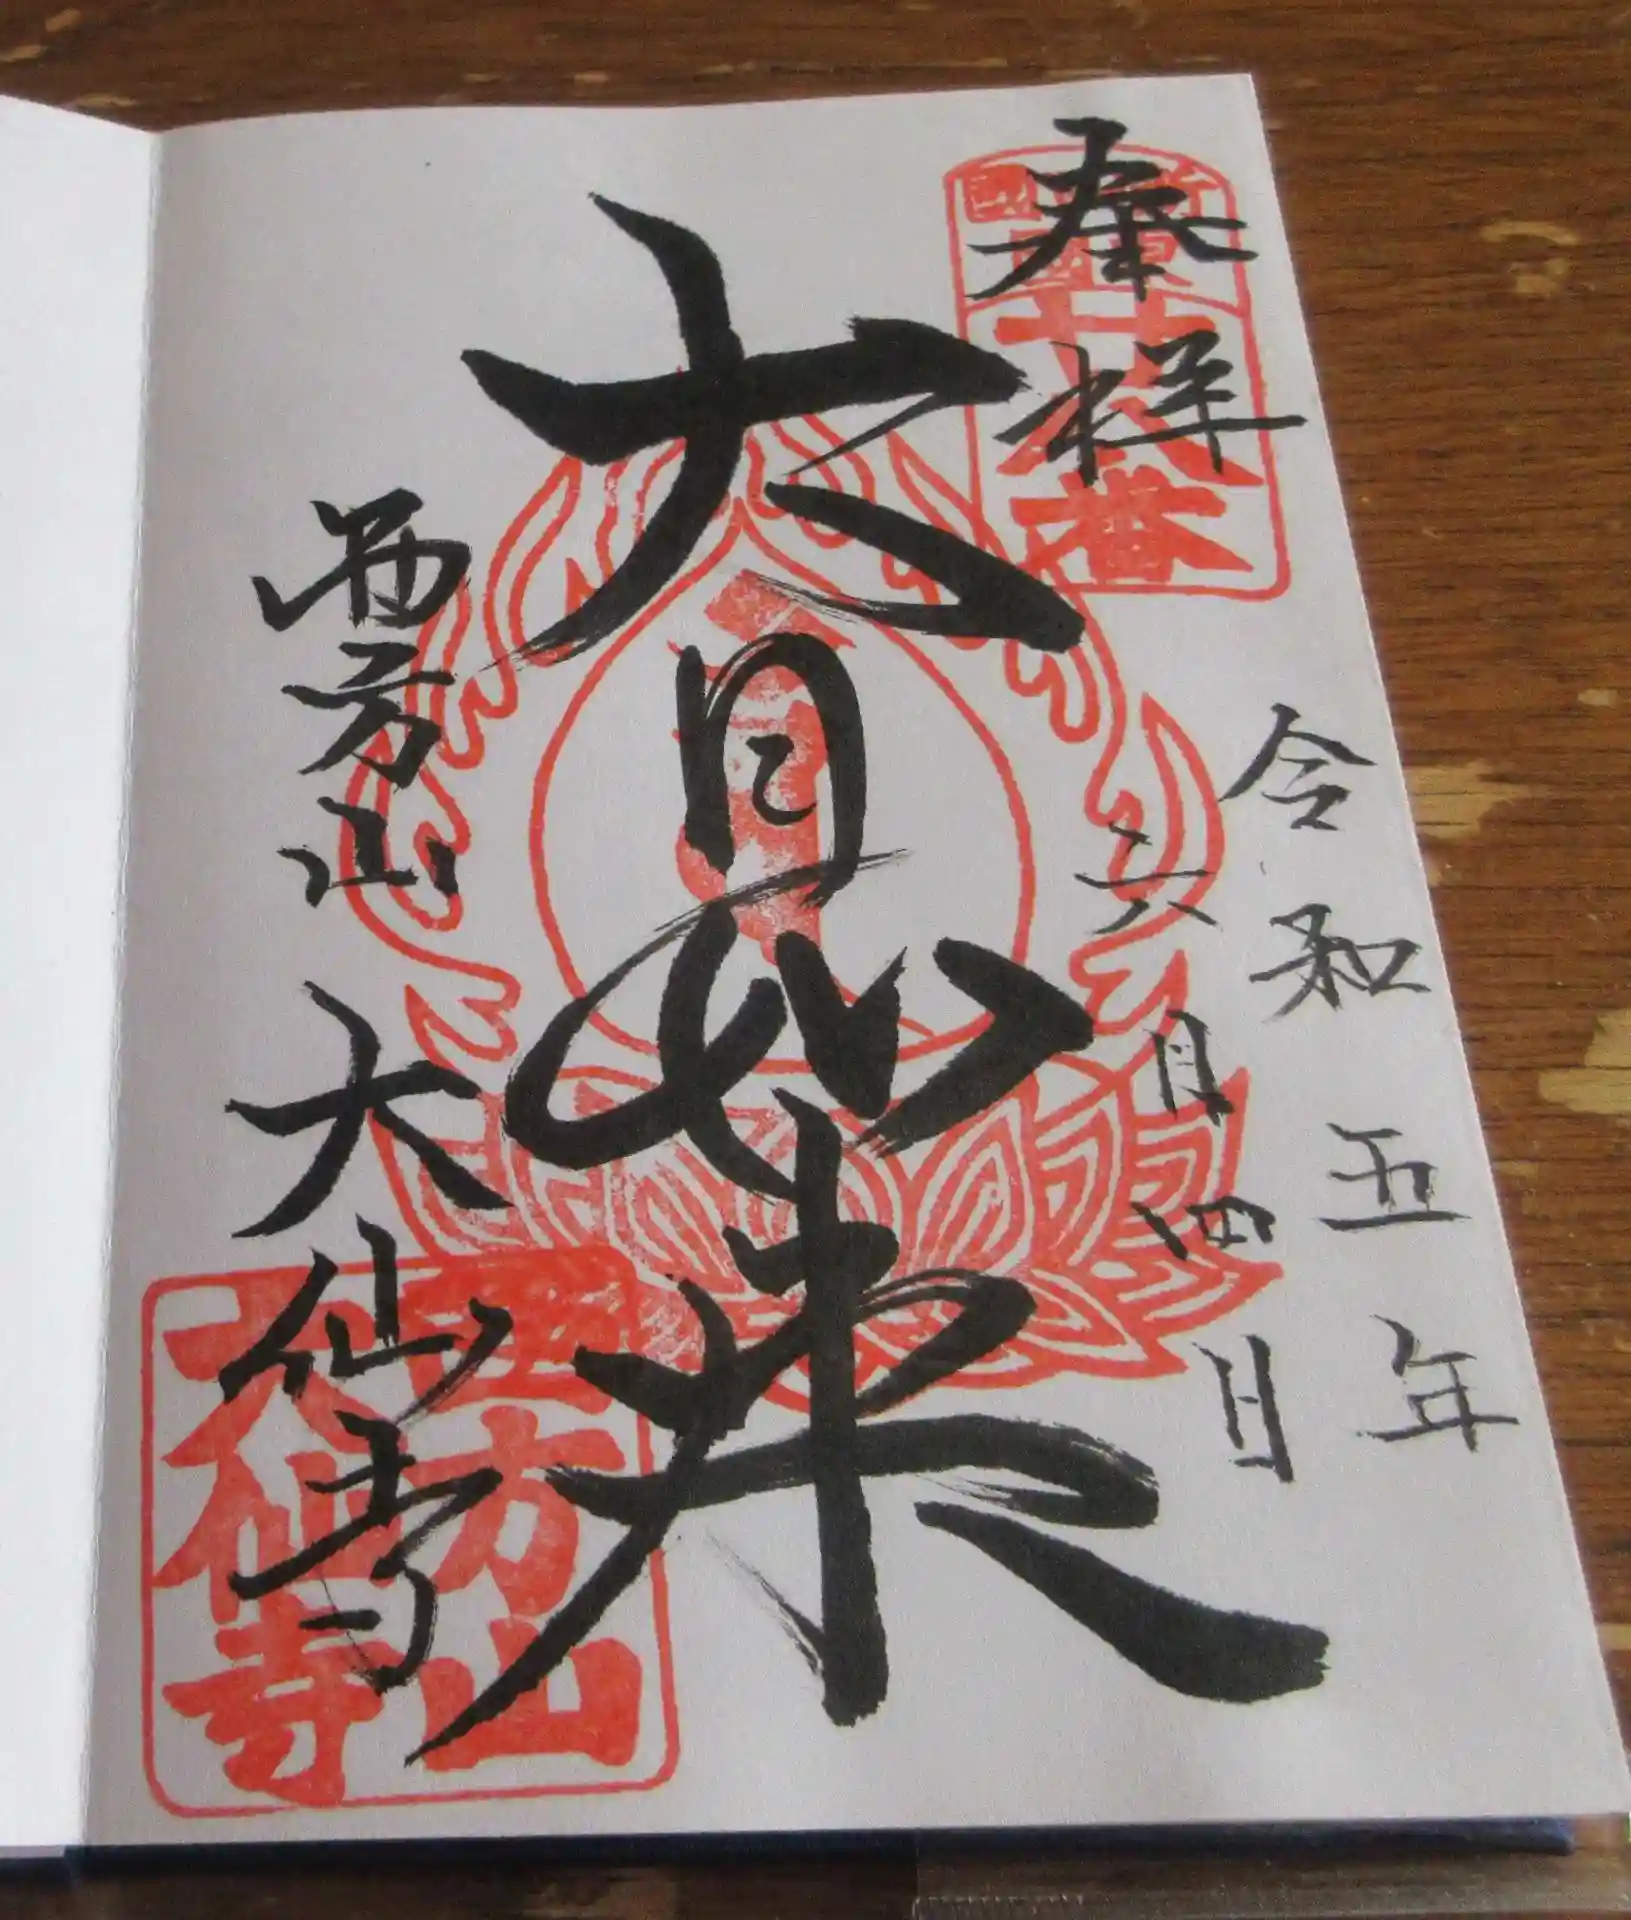 奉拝
令和五年
六月四日
大日如来
西方山
大仙寺
番
西方山
大仙寺